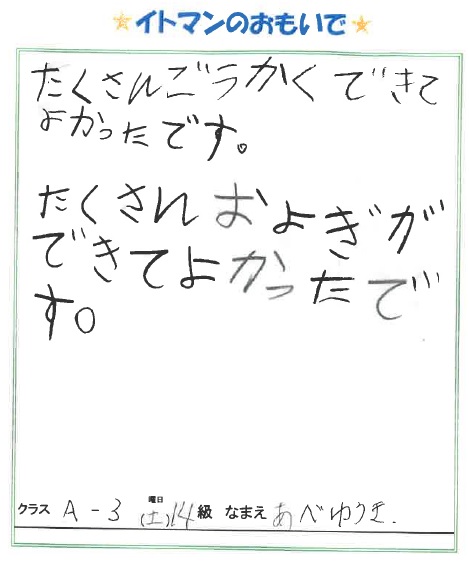 ★イトマンのおもいで★
たくさんごうかくできて
よかったです。
たくさんおよぎが
できてよかったで
す。
クラス A-3 曜日(土)14級 なまえ あべゆうき.